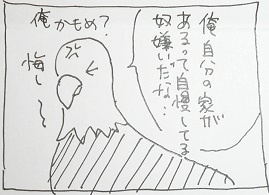 俺自分の家が
あるって自慢してる
奴嫌いだな…
俺かもめ？
悔し〜